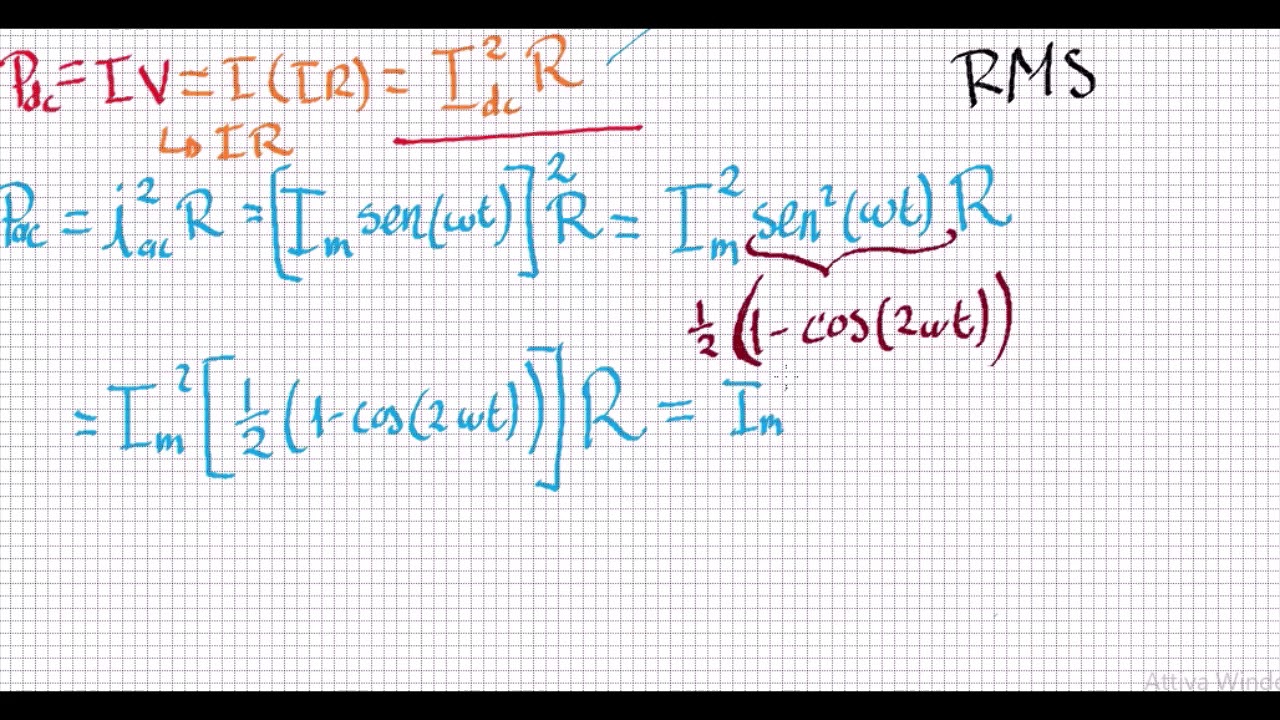 P_dc = IV = I(IR) = I²_dc R
RMS
↳ IR
P_ac = i²_ac R = [I_m sen(ωt)]² R = I_m² sen²(ωt) R
½ (1 - cos(2ωt))
= I_m² [½ (1 - cos(2ωt))] R = I_m
Attiva Windo